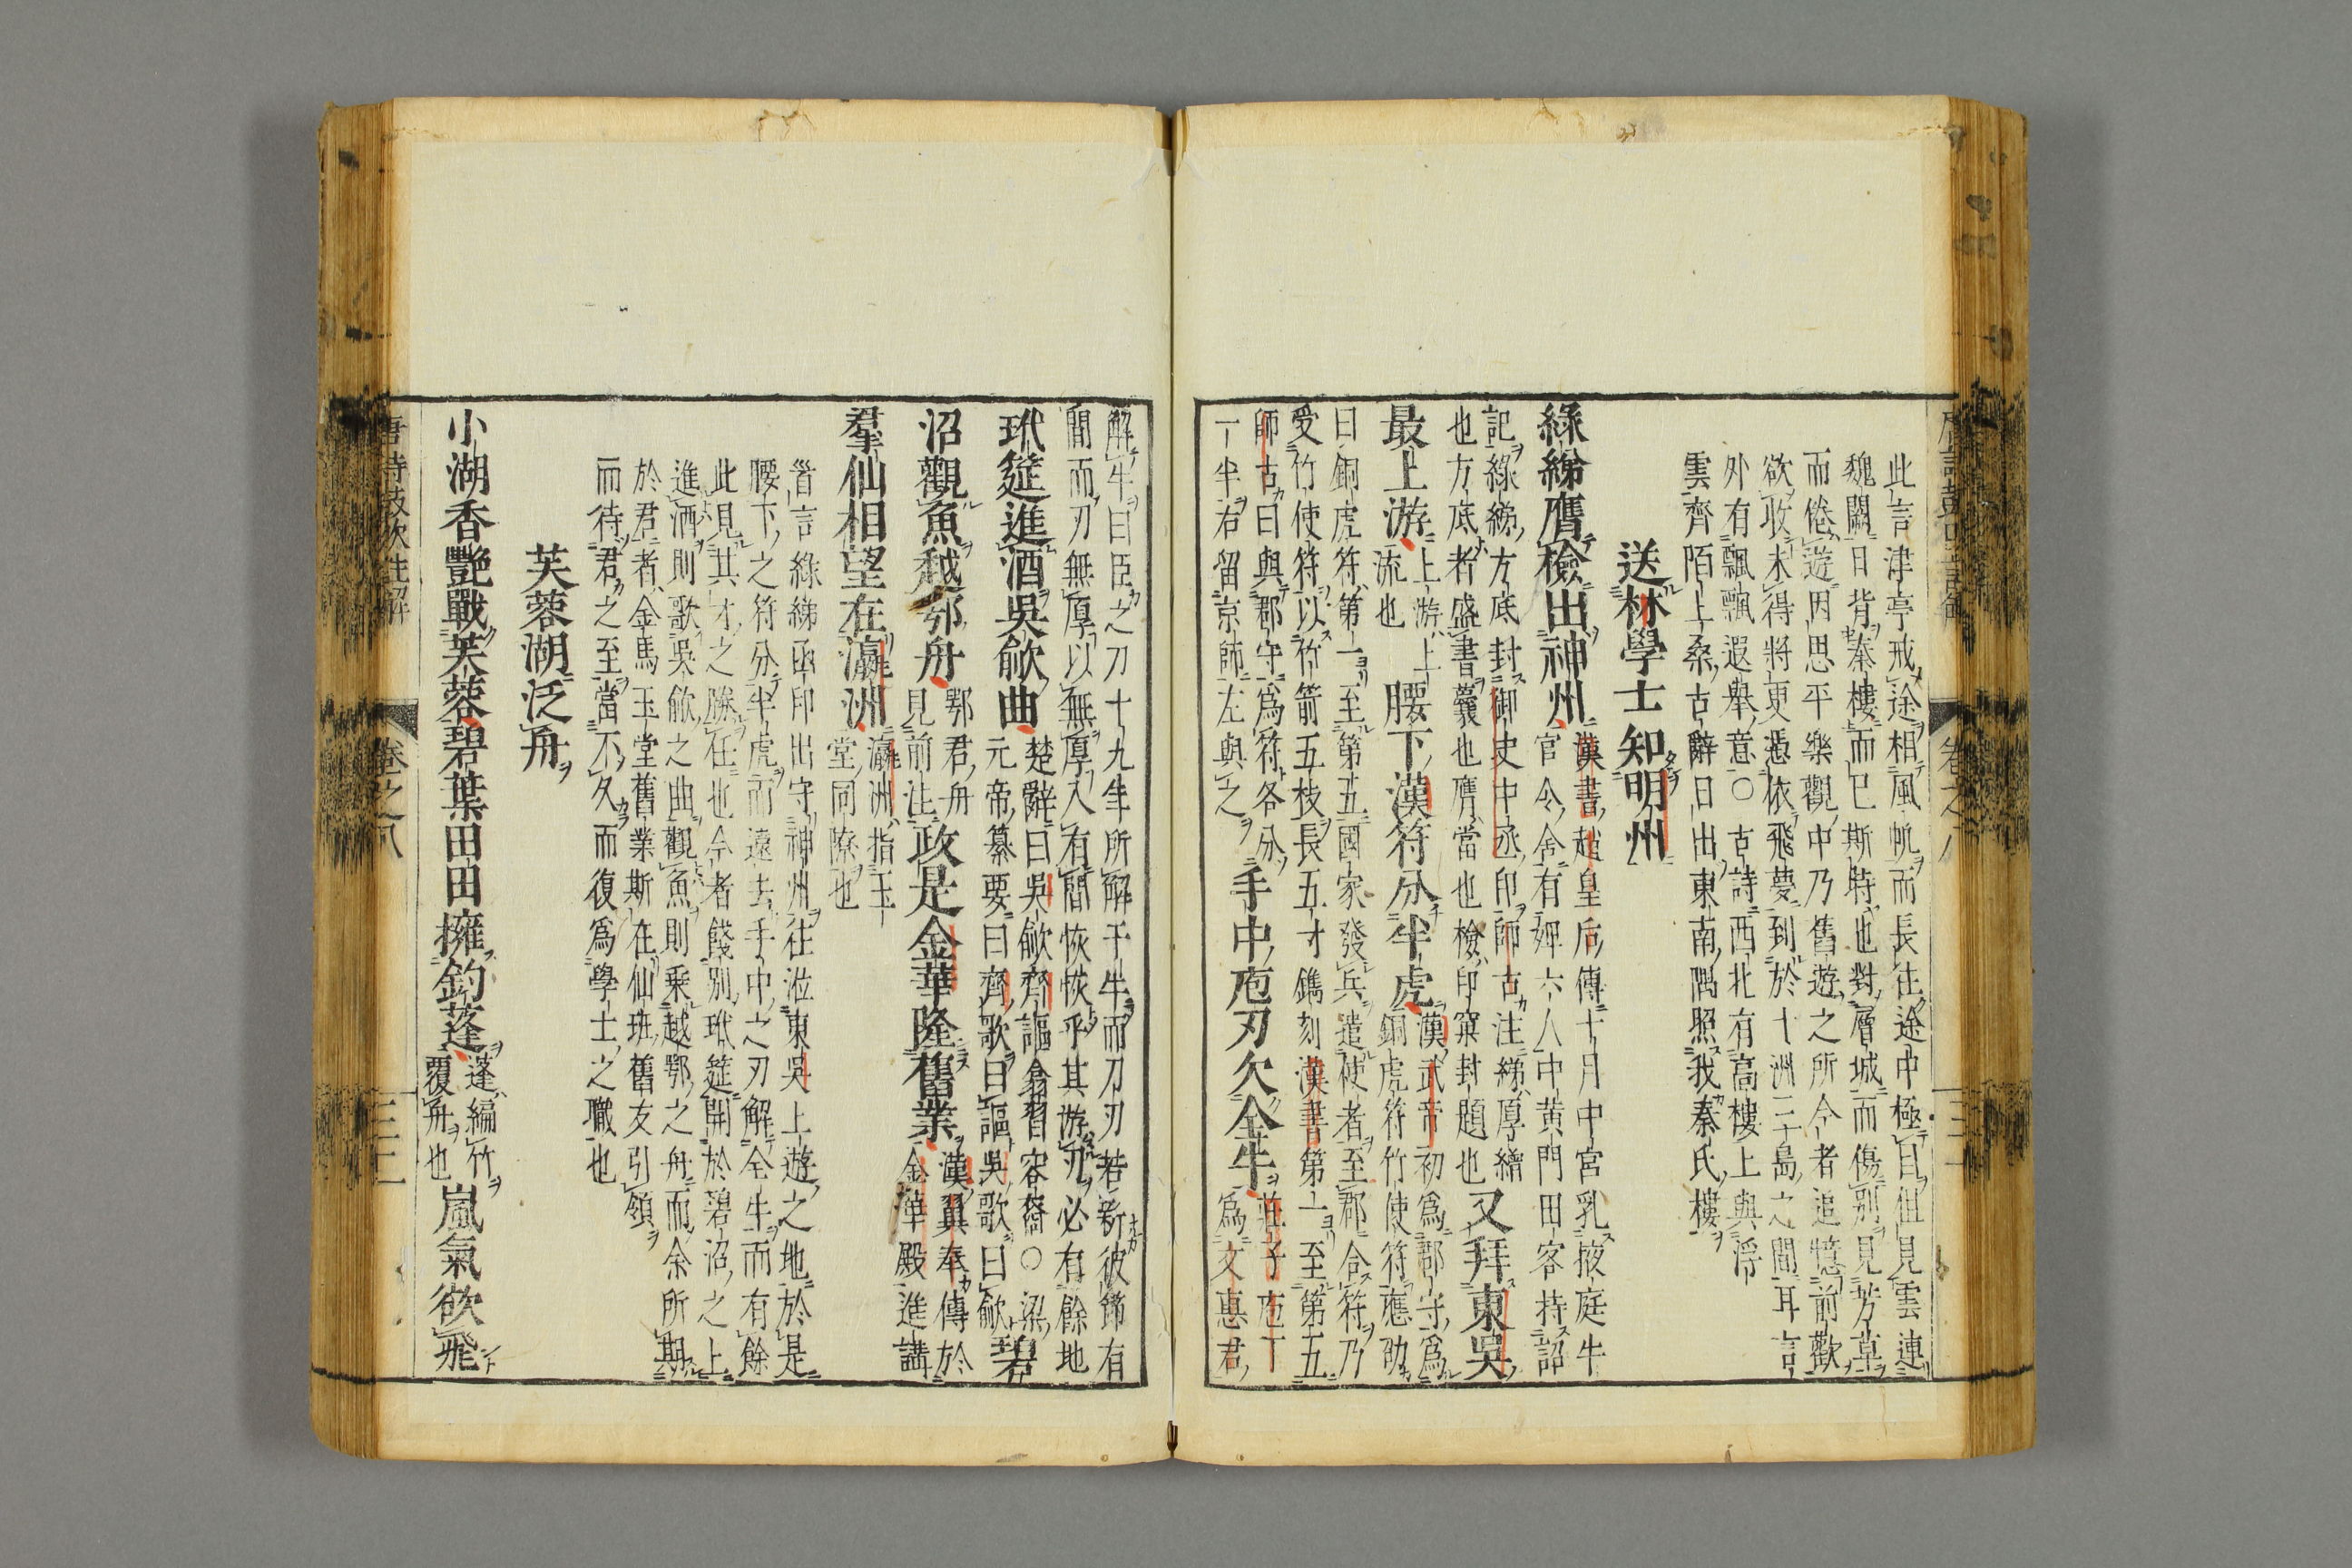 此言津亭戒途相風帆而長往途中極目但見雲連
魏闕日背秦樓而已斯時也對層城而傷別見芳草
而倦遊因思平樂觀中乃舊遊之所今者追憶前歡
欲收未得將更憑依飛夢到於十洲三島之間耳言
外有飄飄遐舉意○古詩西北有高樓上與浮
雲齊陌上桑古辭日出東南隅照我秦氏樓
送林學士知明州
綠綈膺檢出神州
漢書趙皇后傳十月中宮乳掖庭牛
官令舍有婢六人中黃門田客持詔
記綠綈方底封御史中丞印師古注綈厚繒
也方底者盛書囊也膺當也檢印窠封題也
又拜東吳
最上游
上游上
流也
腰下漢符分半虎
漢武帝初爲郡守爲
銅虎符竹使符應劭
曰銅虎符第一至第五國家發兵遣使者至郡合符乃
受竹使符以竹箭五枝長五寸鐫刻漢書第一至第五
師古曰與郡守爲符各分
一半右留京師左與之
手中庖刃欠全牛
莊子庖丁
爲文惠君
解牛曰臣之刀十九年所解千牛而刀刃若新彼節有
間而刃無厚以無厚入有間恢恢乎其游刃必有餘地
玳筵進酒吳歈曲
楚辭曰吳歈齊謳翕習容裔○梁
元帝纂要曰齊歌曰謳吳歌曰歈
碧
沼觀魚越鄂舟
鄂君舟
見前注
政是金華隆舊業
漢翼奉傳於
金華殿進講
羣仙相望在瀛洲
瀛洲指玉
堂同隙也
首言綠綈函印出守神州往涖東吳上遊之地於是
腰下之符分半虎而遠去手中之刃解全牛而有餘
此見其才之勝任也今者餞別玳筵開於碧沼之上
進酒則歌吳歈之曲觀魚則乘越鄂之舟而余所期
於君者金馬玉堂舊業斯在仙班舊友引領
而待君之至當不久而復爲學士之職也
芙蓉湖泛舟
小湖香艷戰芙蓉碧葉田田擁釣蓬
蓬編竹
覆舟也
嵐氣欲飛
卷之八
三十一
唐詩鼓吹註解
卷之八
三十二